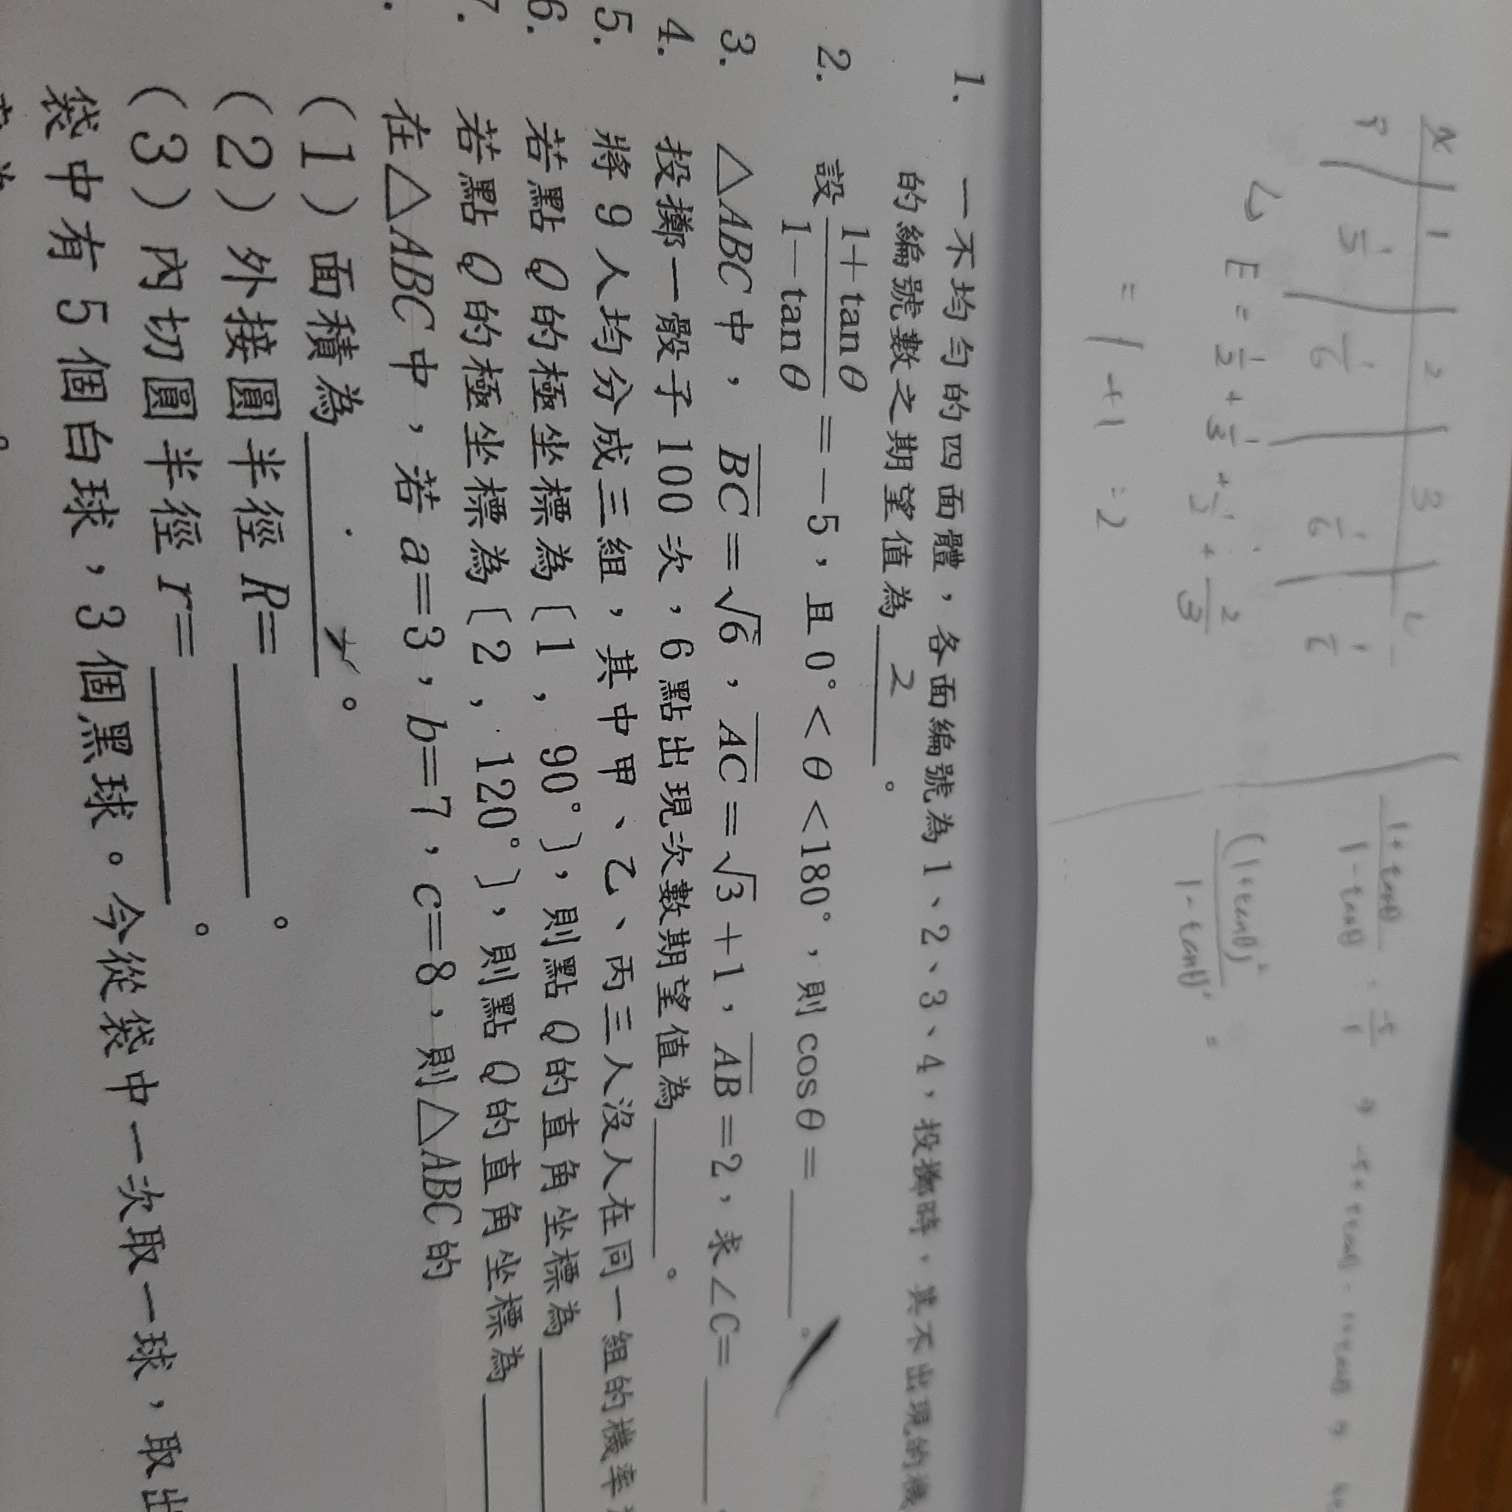 1. 一不均勻的四面體，各面編號為1、2、3、4，投擲時，其不出現的機
的編號數之期望值為 2 。
2. 設 (1+tanθ)/(1−tanθ) = −5，且 0°<θ<180°，則 cosθ= ＿＿＿。
3. △ABC中，BC=√6，AC=√3+1，AB=2，求∠C= ＿＿＿
4. 投擲一骰子100次，6點出現次數期望值為＿＿＿。
5. 將9人均分成三組，其中甲、乙、丙三人沒人在同一組的機率
6. 若點Q的極坐標為〔1，90°〕，則點Q的直角坐標為＿＿＿
7. 若點Q的極坐標為〔2，120°〕，則點Q的直角坐標為＿＿＿
在△ABC中，若a=3，b=7，c=8，則△ABC的
（1）面積為＿＿＿。
（2）外接圓半徑R=＿＿＿。
（3）內切圓半徑r=＿＿＿。
袋中有5個白球，3個黑球。今從袋中一次取一球，取出
x 1 2 3
P 1/3 1/6 1/6
E = 1/2 + 1/3 + 1/2 + 2/3
= 1 + 1 = 2
(1+tanθ)/(1−tanθ) = −5/1
(1+tanθ)² / 1−tanθ² =